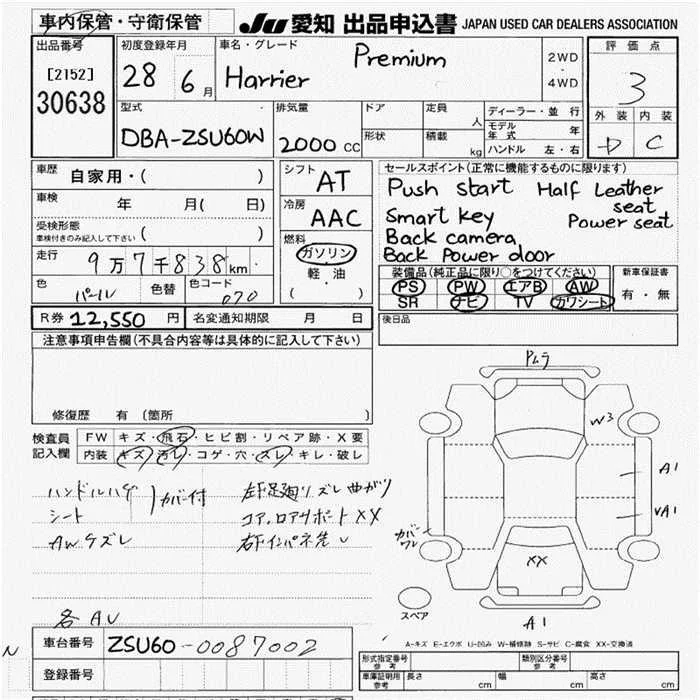 車内保管・守衛保管
JU 愛知 出品申込書 JAPAN USED CAR DEALERS ASSOCIATION
出品番号
[2152]
30638
初度登録年月
28 6月
車名・グレード
Harrier Premium
2WD
・
4WD
評価点
3
外装 内装
D C
型式
DBA-ZSU60W
排気量
2000 CC
ドア
形状
定員
人
積載
kg
ディーラー・並行
モデル年式 年
ハンドル 左・右
車歴
自家用・( )
車検 年 月( 日)
受検形態
車検付きのみ記入して下さい ( )
走行 9万7千838km
色 パール 色替 色コード 070
シフト
AT
冷房
AAC
燃料
ガソリン
軽・油
( )
セールスポイント(正常に機能するものに限ります)
Push start Half Leather seat
Smart key Power seat
Back camera
Back Power door
装備品(純正品に限り○をつけてください)
PS PW エアB AW
SR ナビ TV カワシート
新車保証書
有・無
R券 12,550 円 名変通知期限 月 日
後日品
注意事項申告欄(不具合内容等は具体的に記入して下さい)
修復歴 有(箇所 )
検査員
記入欄
FW キズ・飛石・ヒビ割・リペア跡・X要
内装 キズ・汚レ・コゲ・穴・スレ・キレ・破レ
ハンドルハゲ
シート
カバー付
AWケズレ
コア、ロアサポートXX
各AU
N
車台番号 ZSU60-0087002
登録番号
Pムラ
W3
A1
A1
カバー
ワレ
XX
スペア
A1
A-キズ E-エクボ U-凹み W-補修跡 S-サビ C-腐食 XX-交換済
形式指定番号
参考
類別区分番号
参考
車庫証明用
参考
長さ cm 幅 cm 高さ cm